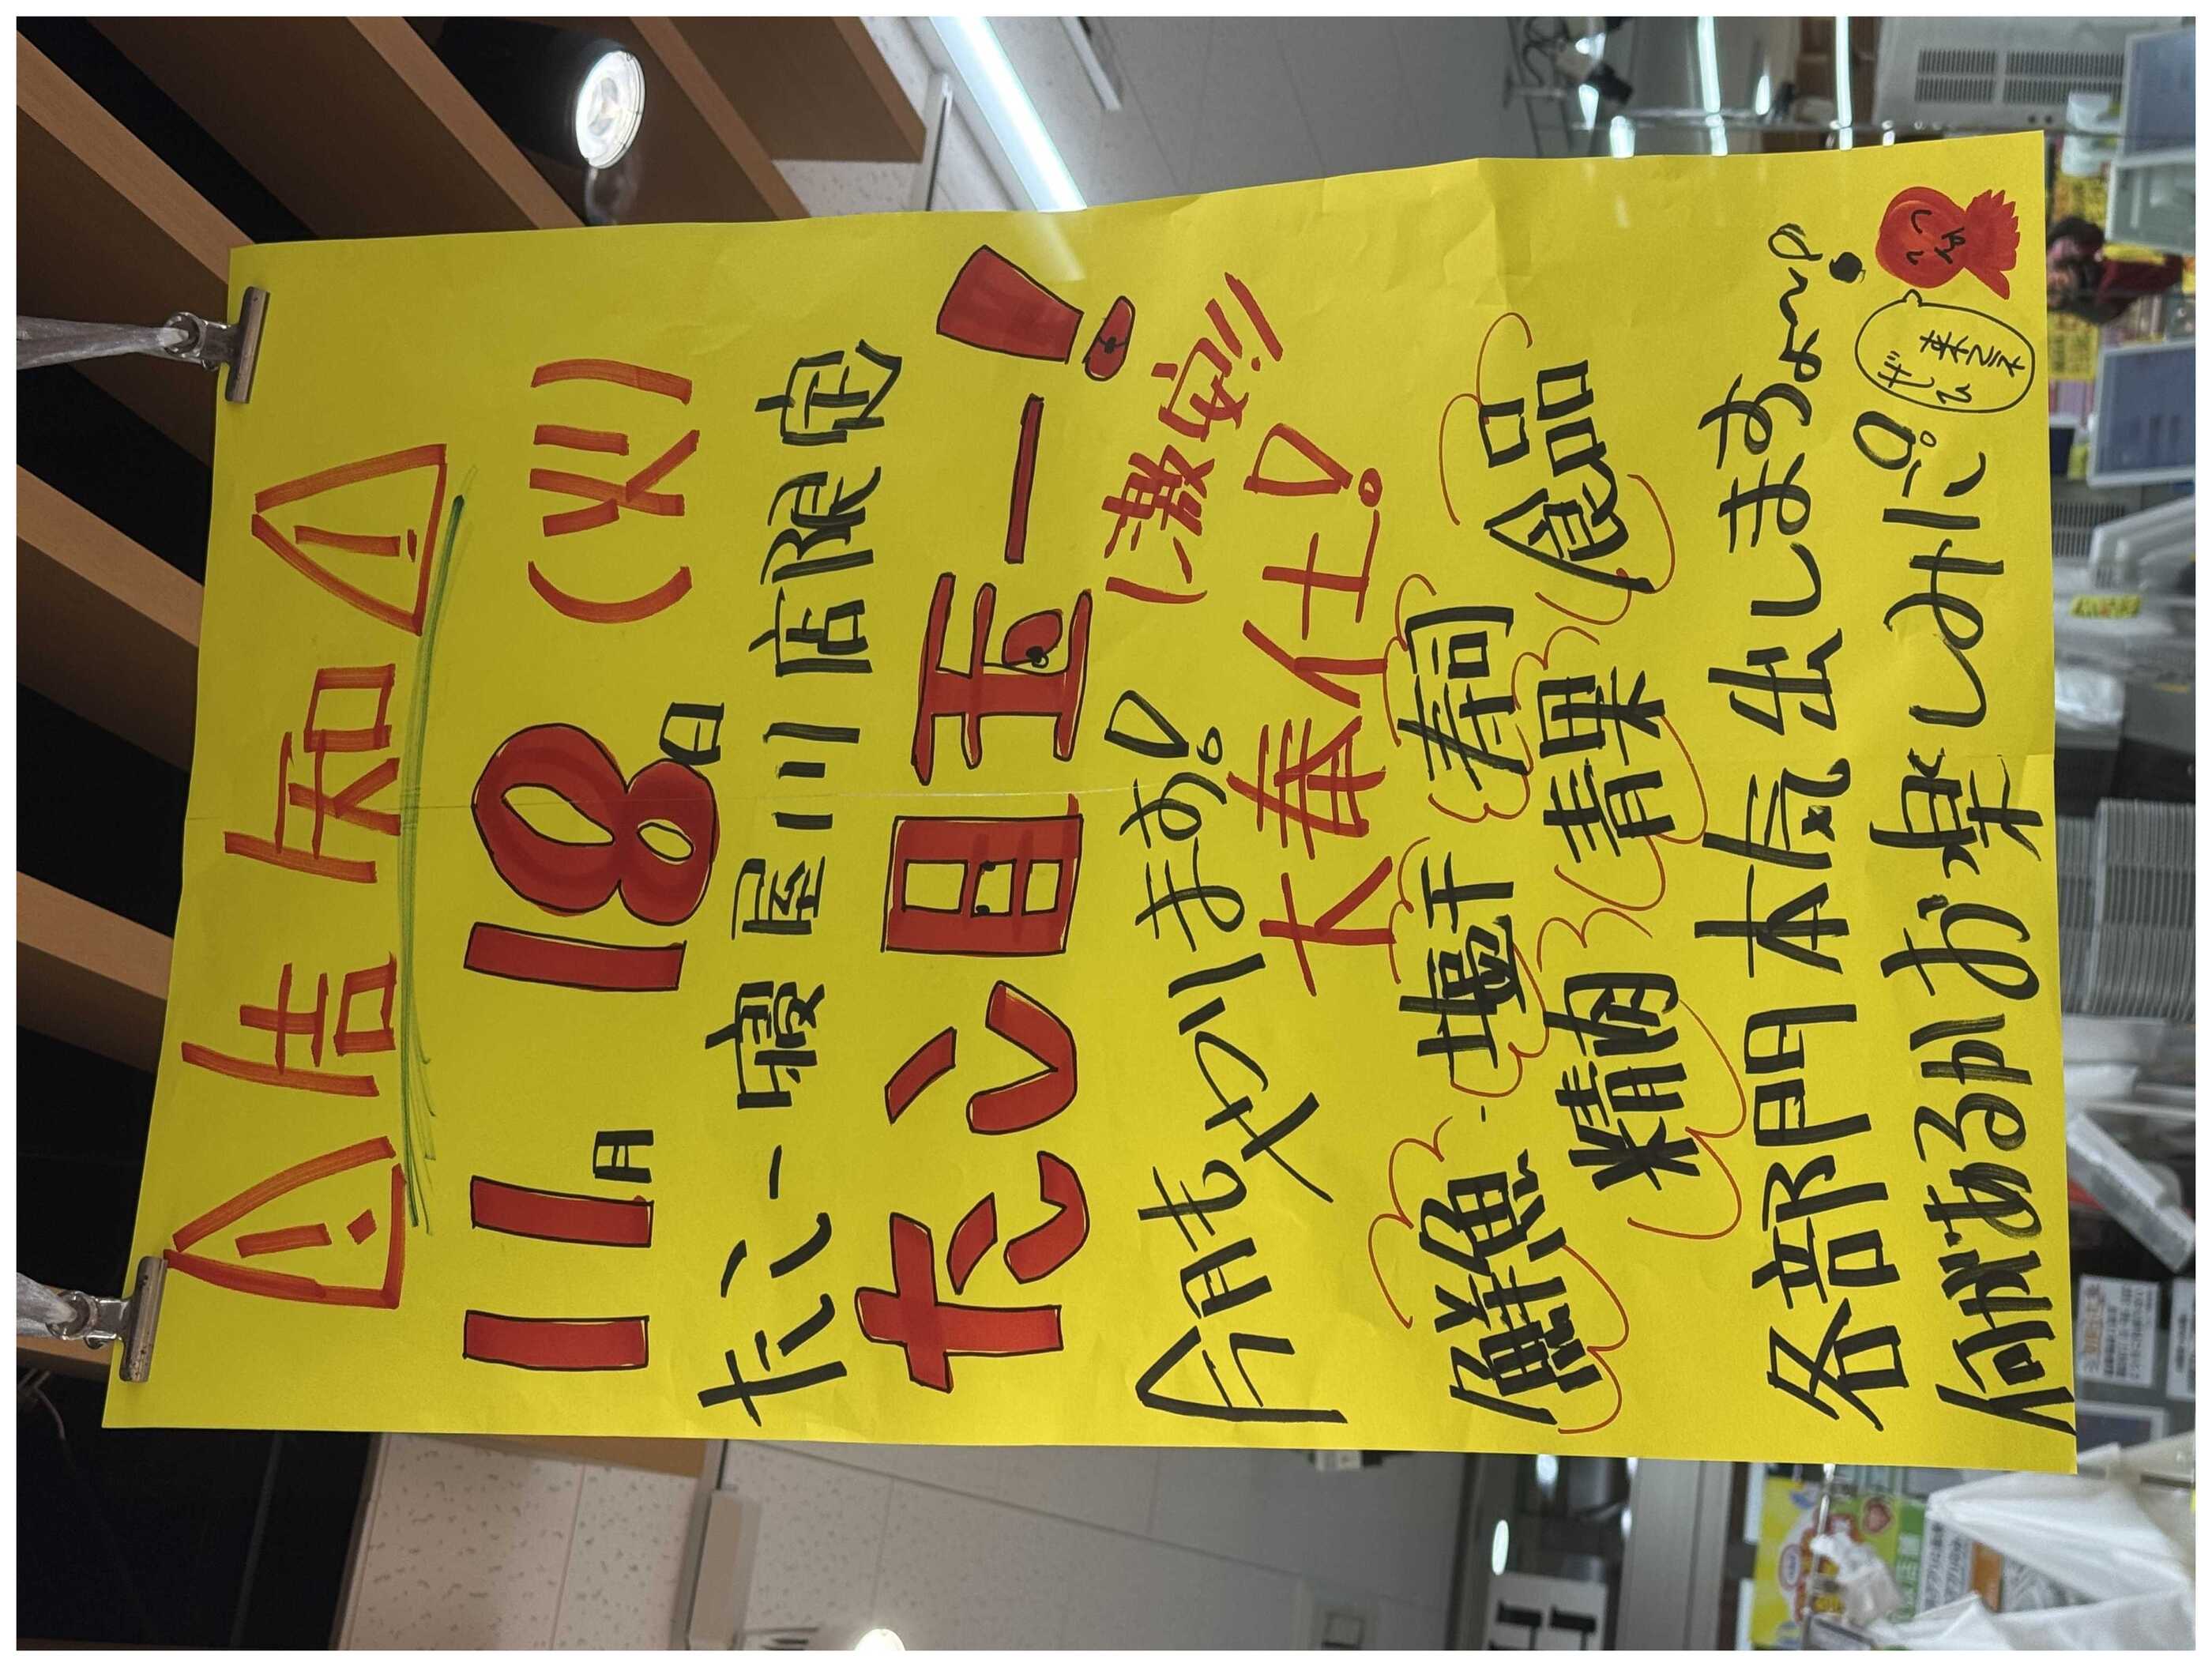 ⚠告知⚠
11月18日(火)
たこ一 寝屋川店限定
たこ目玉一!
今月もやります!
激安
大奉仕!
鮮魚・塩干 寿司 食品
精肉 青果
各部門本気出しますよ〜!
何があるかお楽しみに!
ぜひ
来てネ